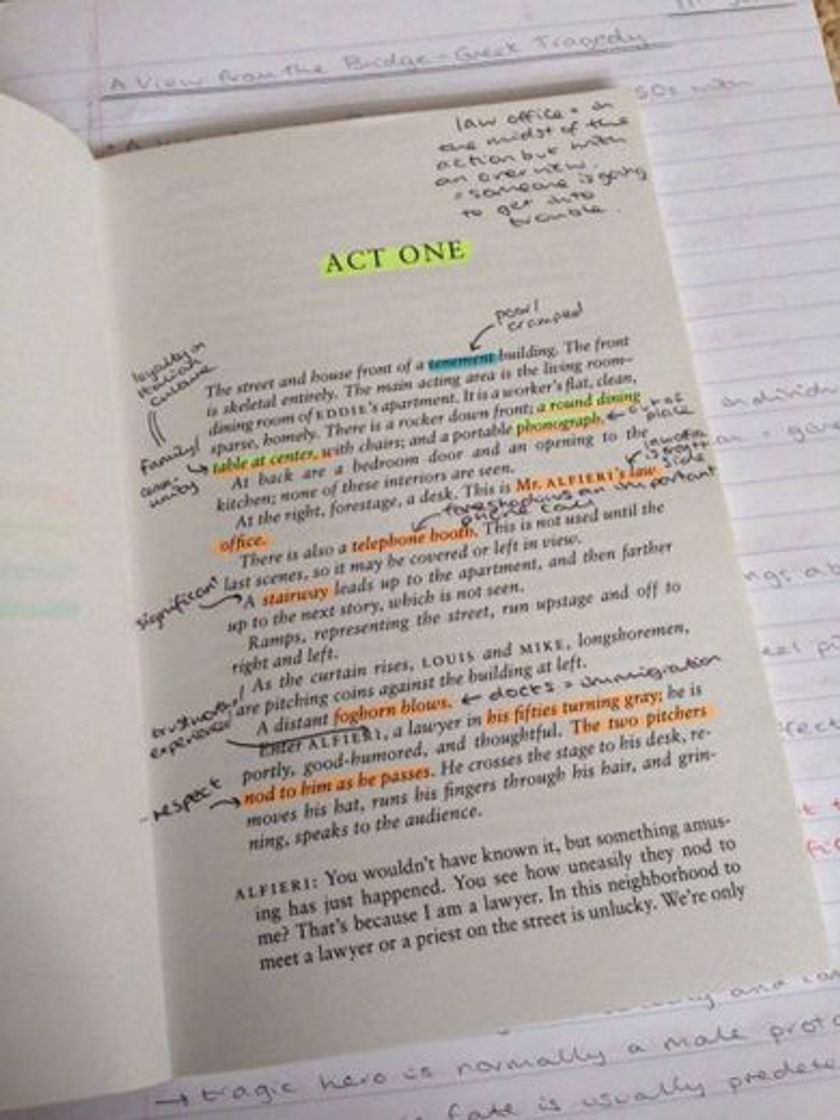 A View from the Bridge - Greek Tragedy
50s with
law office = in
the midst of the
action but with
an overview.
= someone is going
to get into
trouble.
ACT ONE
poor/
cramped
loyalty in
Italian
culture
family/
comm-
unity
The street and house front of a tenement building. The front
is skeletal entirely. The main acting area is the living room–
dining room of EDDIE's apartment. It is a worker's flat, clean,
sparse, homely. There is a rocker down front; a round dining
table at center, with chairs; and a portable phonograph.
out of
place
At back are a bedroom door and an opening to the
kitchen; none of these interiors are seen.
At the right, forestage, a desk. This is Mr. ALFIERI's law
office.
side
foreshadows an important
phone call
There is also a telephone booth. This is not used until the
last scenes, so it may be covered or left in view.
significant
A stairway leads up to the apartment, and then farther
up to the next story, which is not seen.
Ramps, representing the street, run upstage and off to
right and left.
As the curtain rises, LOUIS and MIKE, longshoremen,
are pitching coins against the building at left.
A distant foghorn blows.
docks = immigration
experienced
Enter ALFIERI, a lawyer in his fifties turning gray; he is
portly, good-humored, and thoughtful. The two pitchers
nod to him as he passes. He crosses the stage to his desk, re-
- respect
moves his hat, runs his fingers through his hair, and grin-
ning, speaks to the audience.
ALFIERI: You wouldn't have known it, but something amus-
ing has just happened. You see how uneasily they nod to
me? That's because I am a lawyer. In this neighborhood to
meet a lawyer or a priest on the street is unlucky. We're only
→ tragic hero is normally a male
fate is usually